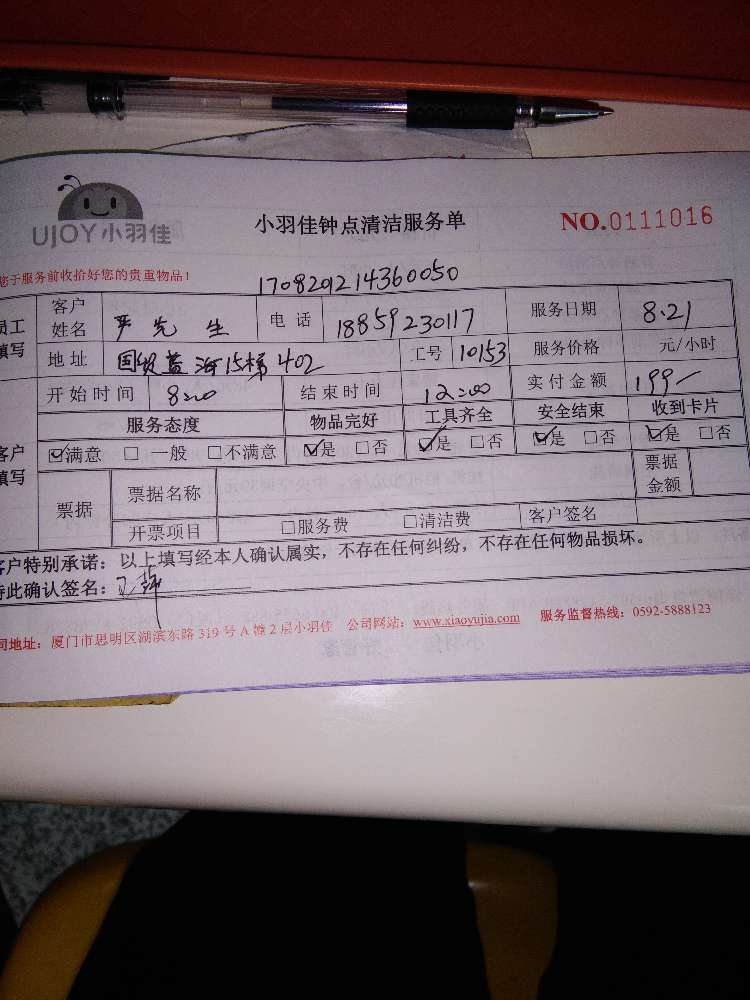 UJOY小羽佳
小羽佳钟点清洁服务单
NO.0111016
您于服务前收拾好您的贵重物品！
170820214360050
员工填写 客户姓名 严先生 电话 18859230117 服务日期 8.21
地址 国贸蓝海15梯402 工号 10153 服务价格 元/小时
开始时间 8:00 结束时间 12:00 实付金额 199
客户填写 服务态度 物品完好 工具齐全 安全结束 收到卡片
☑满意 □一般 □不满意 ☑是 □否 ☑是 □否 ☑是 □否 ☑是 □否
票据 票据名称 票据金额
开票项目 □服务费 □清洁费 客户签名
客户特别承诺：以上填写经本人确认属实，不存在任何纠纷，不存在任何物品损坏。
特此确认签名：
司地址：厦门市思明区湖滨东路 319 号 A 幢 2 层小羽佳 公司网站：www.xiaoyujia.com 服务监督热线：0592-5888123